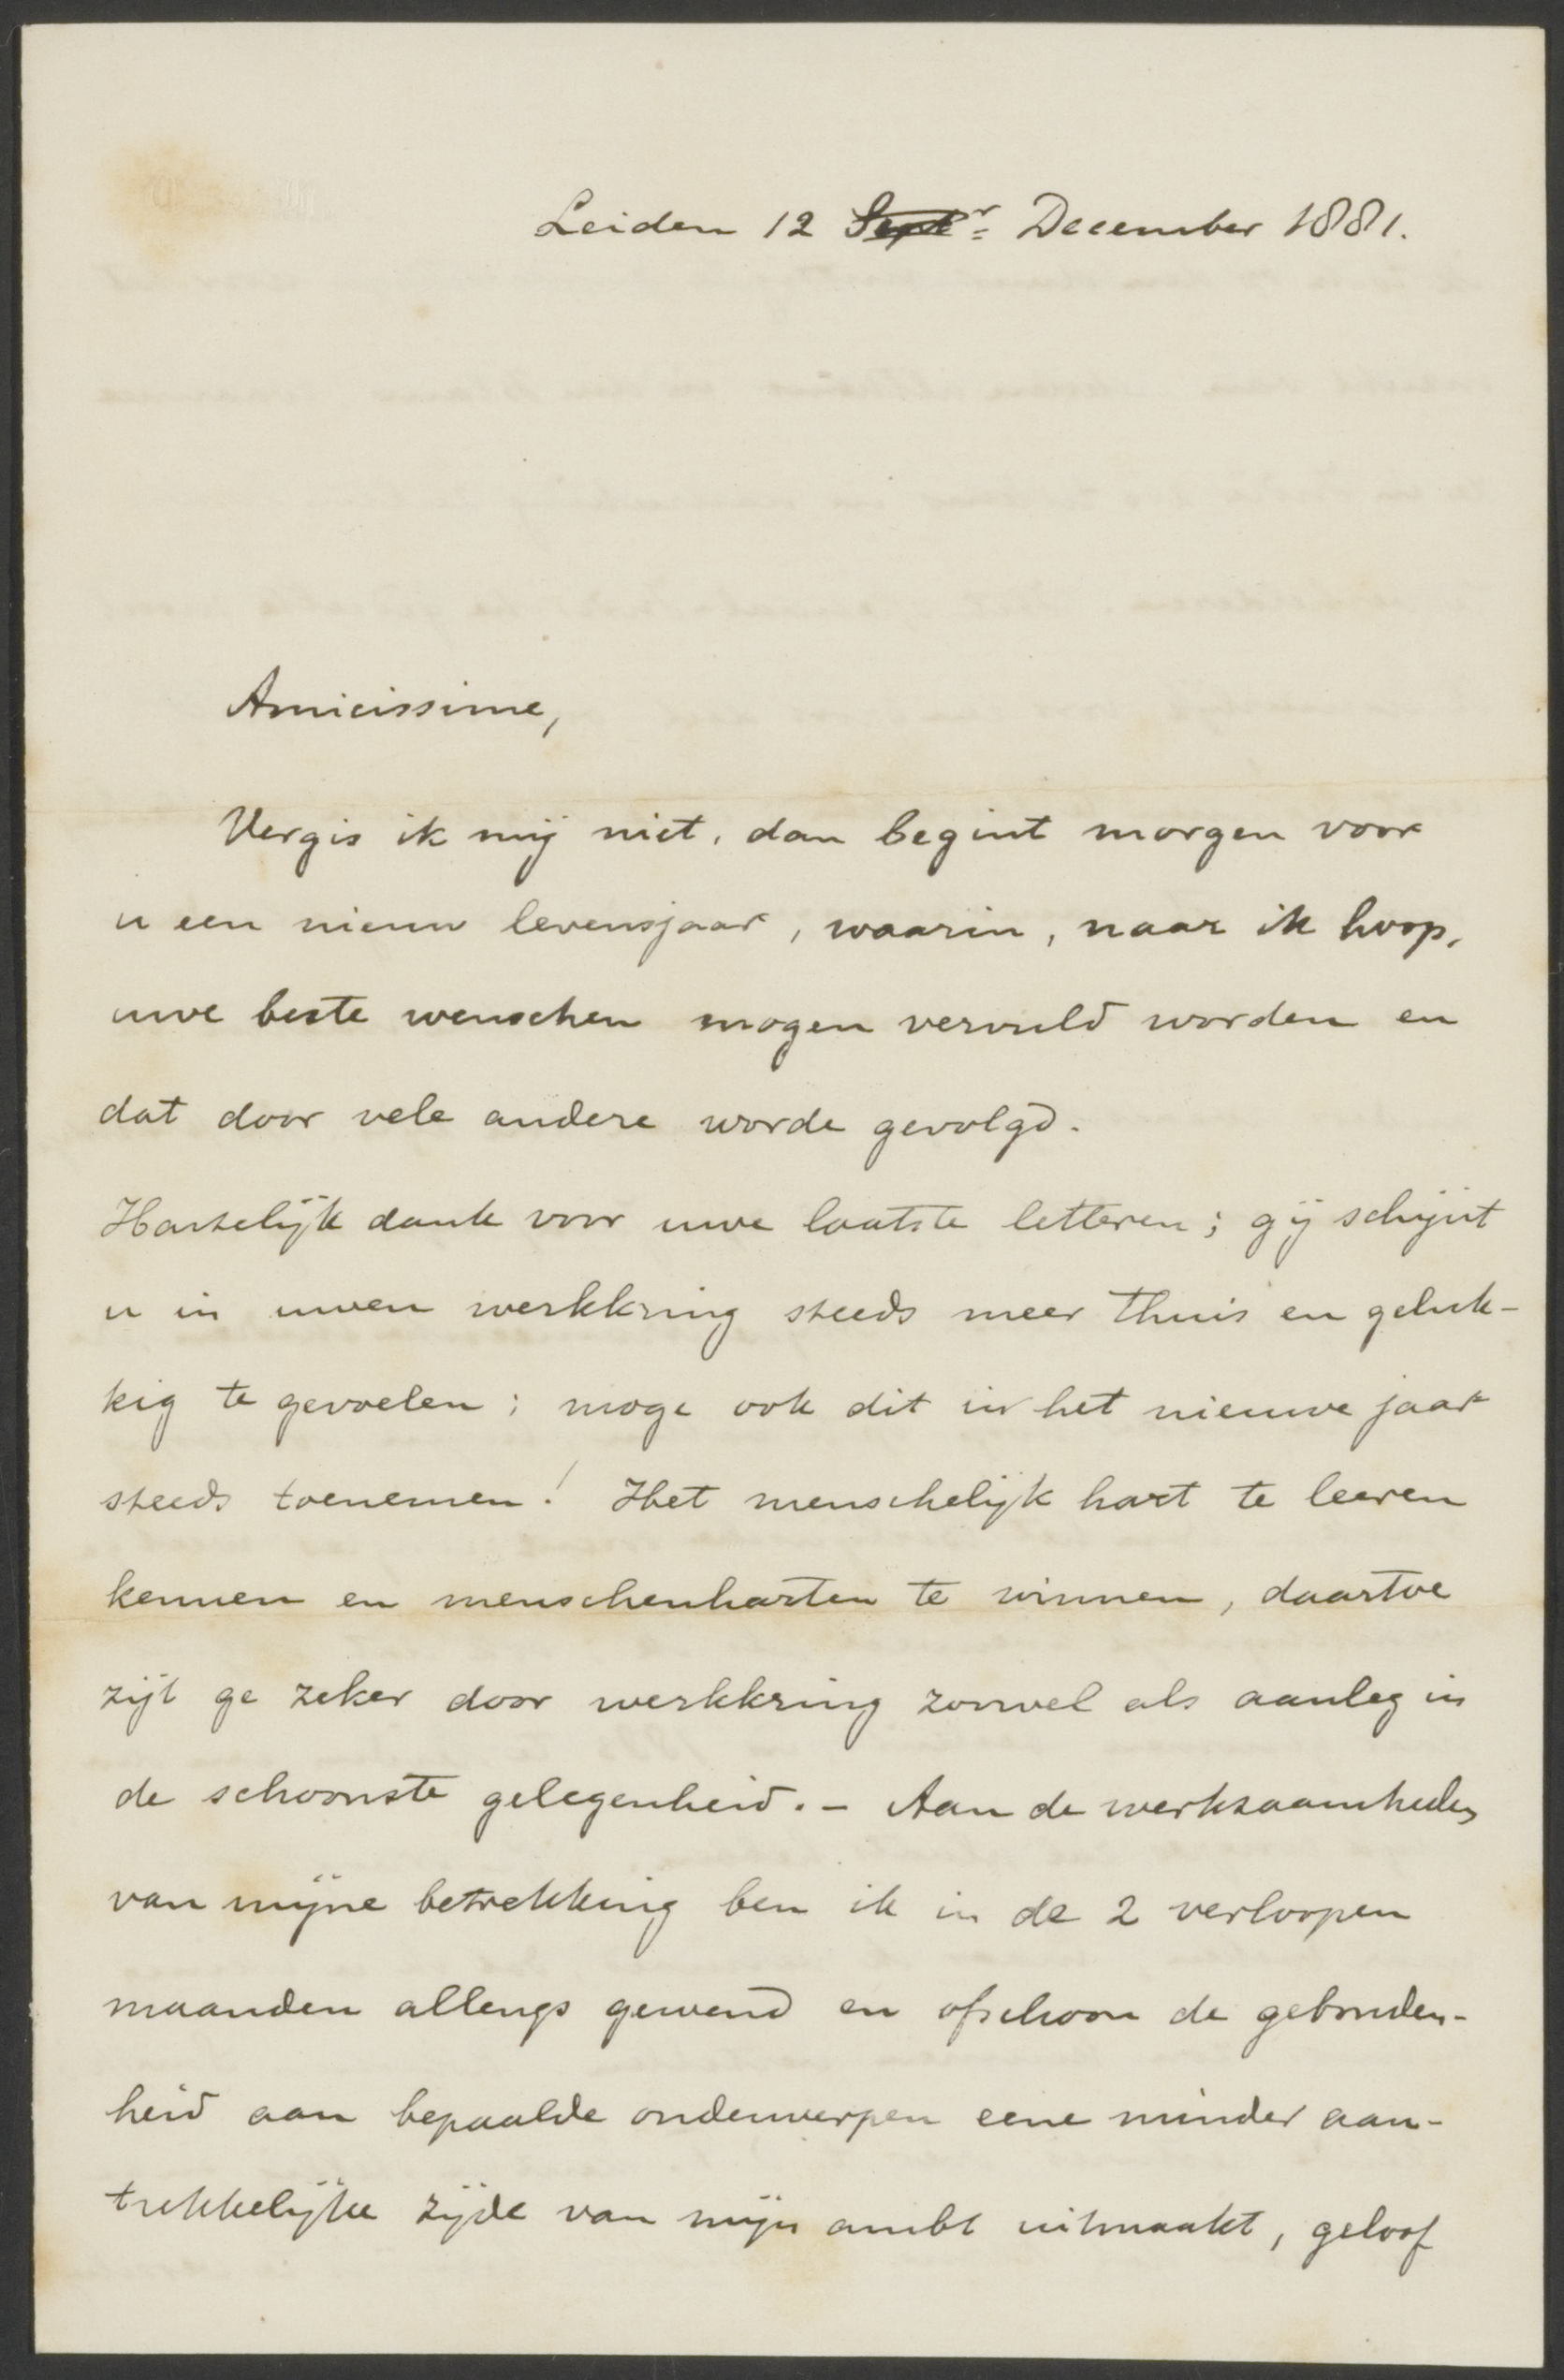 Leiden 12 Septr December 1881.
Amicissime,
Vergis ik mij niet, dan begint morgen voor
u een nieuw levensjaar, waarin, naar ik hoop,
uwe beste wenschen mogen vervuld worden en
dat door vele andere worde gevolgd.
Hartelijk dank voor uwe laatste letteren; gij schijnt
u in uwen werkkring steeds meer thuis en geluk-
kig te gevoelen; moge ook dit in het nieuwe jaar
steeds toenemen! Het menschelijk hart te leeren
kennen en menschenharten te winnen, daartoe
zijt ge zeker door werkkring zoowel als aanleg in
de schoonste gelegenheid. – Aan de werkzaamheden
van mijne betrekking ben ik in de 2 verloopen
maanden allengs gewend en ofschoon de gebonden-
heid aan bepaalde onderwerpen eene minder aan-
trekkelijke zijde van mijn ambt uitmaakt, geloof